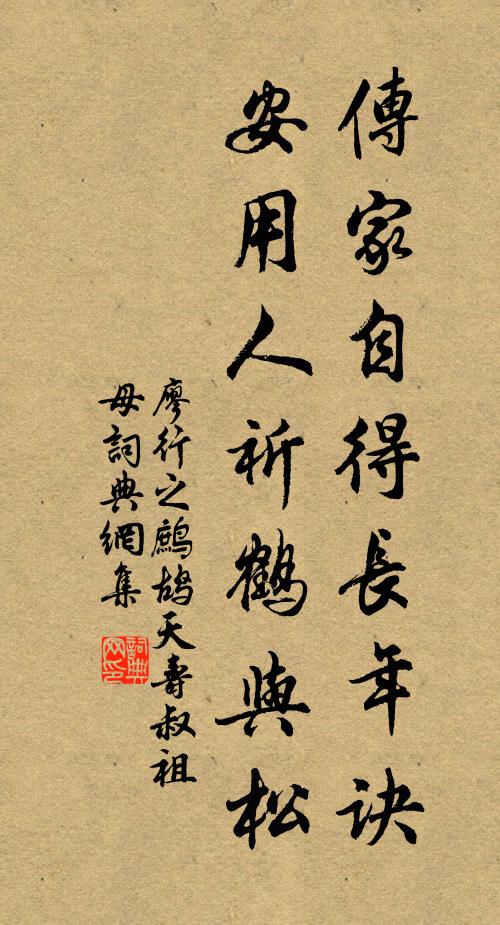 傳家自得長年訣
安用人祈鶴與松
廖行之鷓鴣天壽叔祖
母詞典網集
詞典
网印